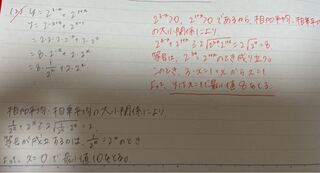 125 y = 2^{3-x} + 2^{1+x}
y = 2^{3-x} + 2^{1+x}
= 2·2·2·2^{-x} + 2·2^x
= 8·2^{-x} + 2·2^x
= 8·\frac{1}{2^x} + 2·2^x
相加平均、相乗平均の大小関係により
等号が成立するのは \frac{1}{2^x} = 2^x のとき
よって、x=0で最小値10をとる
2^{3-x}>0, 2^{1+x}>0であるから、相加平均、相乗平均
の大小関係により
2^{3-x}+2^{1+x}≧2\sqrt{2^{3-x}·2^{1+x}}=2\sqrt{2^4}=8
等号は、2^{3-x}=2^{1+x}のとき成り立つ。
このとき、3-x=1+xからx=1
よって、yはx=1で最小値8をとる